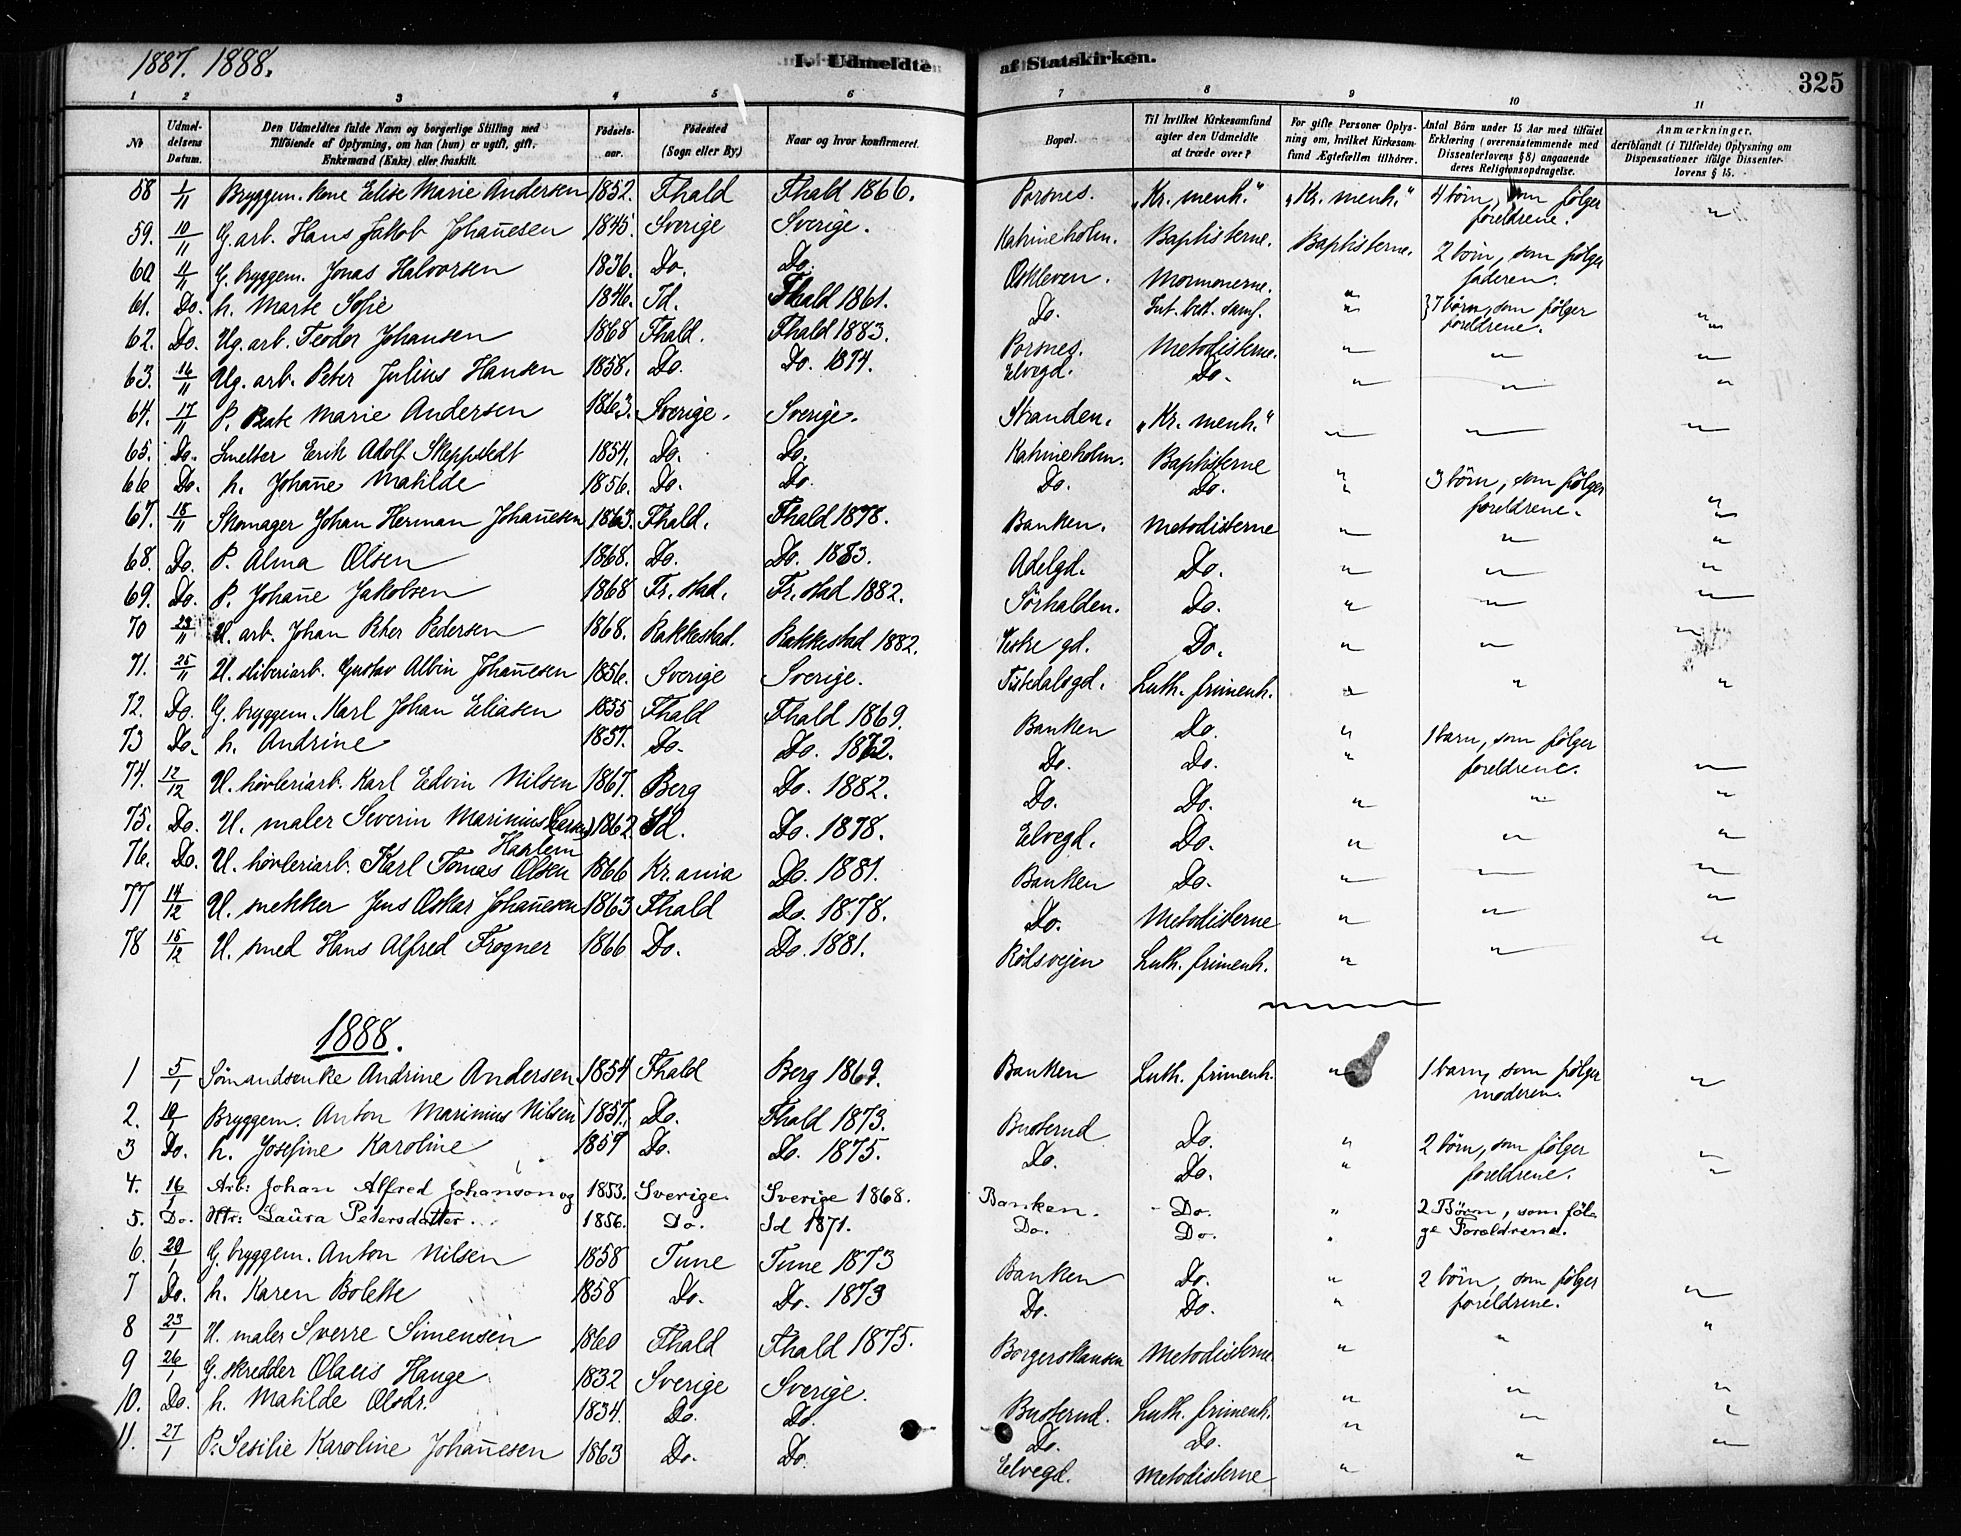 1887. 1888.
I. Udmeldte af Statskirken.
325
1 2 3 4 5 6 7 8 9 10 11
No
Udmel-
delsens
Datum.
Den Udmeldtes fulde Navn og borgerlige Stilling med
Tilføiende af Oplysning, om han (hun) er ugift, gift,
Enkemand (Enke) eller fraskilt.
Fødsels-
aar.
Fødested
(Sogn eller By.)
Naar og hvor konfirmeret.
Bopæl.
Til hvilket Kirkesamfund
agter den Udmeldte
at træde over?
For gifte Personer Oplys-
ning om, hvilket Kirkesam-
fund Ægtefællen tilhører.
Antal Børn under 15 Aar med tilføiet
Erklæring (overensstemmende med
Dissenterlovens § 8) angaaende
deres Religionsopdragelse.
Anmærkninger,
deriblandt (i Tilfælde) Oplysning om
Dispensationer ifølge Dissenter-
lovens § 15.
58 1/11 Bryggem. kone Elise Marie Andersen 1852. Fhald Fhald 1866. Porsnes. „Kr. menh." „Kr. menh." 4 børn, som følger foreldrene. "
59. 10/11 G. arb. Hans Jakob Johañesen 1845. Sverige Sverige. Katrineholm. Baptisterne. Baptisterne. 2 børn, som følger faderen.
60 11/11 G. bryggem. Jonas Halvorsen 1836. Do. Do. Oskleven. Mormonerne. "
61. Do. h. Marte Sofie 1846. Id. Fhald 1861. Do. Int. best. samf. " }7 børn, som følger foreldrene. "
62. Do. Ug. arb. Teodor Johansen 1868 Fhald. Fhald 1883. Porsnes. Metodisterne. " " "
63. 16/11 Ug. arb. Peter Julius Hansen 1858. Do. Do. 1874. Elvegd. Do. " " "
64. 17/11 P. Beate Marie Andersen 1863. Sverige. Sverige. Stranden. „Kr. menh." " " "
65. Do. Smelter Erik Adolf Skeppstedt 1854. Do. Do. Katrineholm. Baptisterne "
66 Do. h. Johañe Matilde 1856. Do. Do. Do. Do. " 3 børn, som følger foreldrene. "
67. 18/11 Skomager Johan Herman Johañesen 1863. Fhald. Fhald 1878. Banken. Metodisterne " " "
68. Do. P. Alma Olsen 1868. Do. Do. 1883. Adelgd. Do. " " "
69. Do. P. Johañe Jakobsen 1868 Fr. stad. Fr. stad 1882. Sørhalden. Do. " " "
70 23/11 U. arb. Johan Peter Pedersen 1868. Rakkestad. Rakkestad 1882. Vestre gd. Do. " " "
71. 25/11 U. sliberiarb. Gustav Albin Johañesen 1856. Sverige Sverige. Tistedalsgd. Luth. frimenh. " " "
72. Do. G. bryggem. Karl Johan Eliasen 1855 Fhald Fhald 1869. Banken Do. "
73 Do. h. Andrine 1857. Do. Do. 1872. Do. Do. " 1 barn, som følger foreldrene. "
74. 12/12 U. høvleriarb. Karl Edvin Nilsen 1867. Berg Do. 1882. Do. Do. " " "
75. Do. U. maler Severin Marinius 1862 Id. Do. 1878. Elvegd. Do. " " "
76. Do. U. høvleriarb. Karl Tomas Olsen 1866 Kr.ania Do. 1881. Banken Do. " " "
77 14/12 U. snekker Jens Oskar Johañesen 1863 Fhald Do. 1878. Do. Metodisterne " " "
78 15/12 U. smed Hans Alfred Frogner 1866 Do. Do. 1881. Rødsvejen Luth. frimenh. " " "
1888.
1 5/1 Sømandsenke Andrine Andersen 1854 Fhald Berg 1869. Banken Luth. frimenh. " 1 barn, som følger moderen. "
2. 10/1 Bryggem. Anton Marinius Nilsen 1857. Do. Fhald 1873. Busterud Do. "
3 Do. h. Josefine Karoline 1859 Do. Do. 1875. Do. Do. " 2 børn, som følger foreldrene. "
4. 16/1 Arb: Johan Alfred Johanson og 1853. Sverige. Sverige 1868. Banken. Do. " 2 Børn, som føl-
5. Do. Laŭra Petersdatter. 1856. Do. Id 1871. Do. Do. " ge Forældrene.
6. 20/1 G. bryggem. Anton Nilsen 1858 Tune Tune 1873 Banken Do. " 2 børn, som følger
7 Do. h. Karen Bolette 1858 Do. Do. 1873 Do. Do. " foreldrene. "
8 23/1 U. maler Sverre Simensen 1860 Fhald Fhald 1875. Borgerskansen Metodisterne " " "
9 26/1 G. skredder Olaus Hauge 1832 Sverige Sverige. Busterud. Luth. frimenh. " " "
10. Do. h. Matilde Olsdr. 1834. Do. Do. Do. Do. " " "
11. 27/1 P. Sesilie Karoline Johañesen 1863 Do. Do. Elvegd. Metodisterne " " "